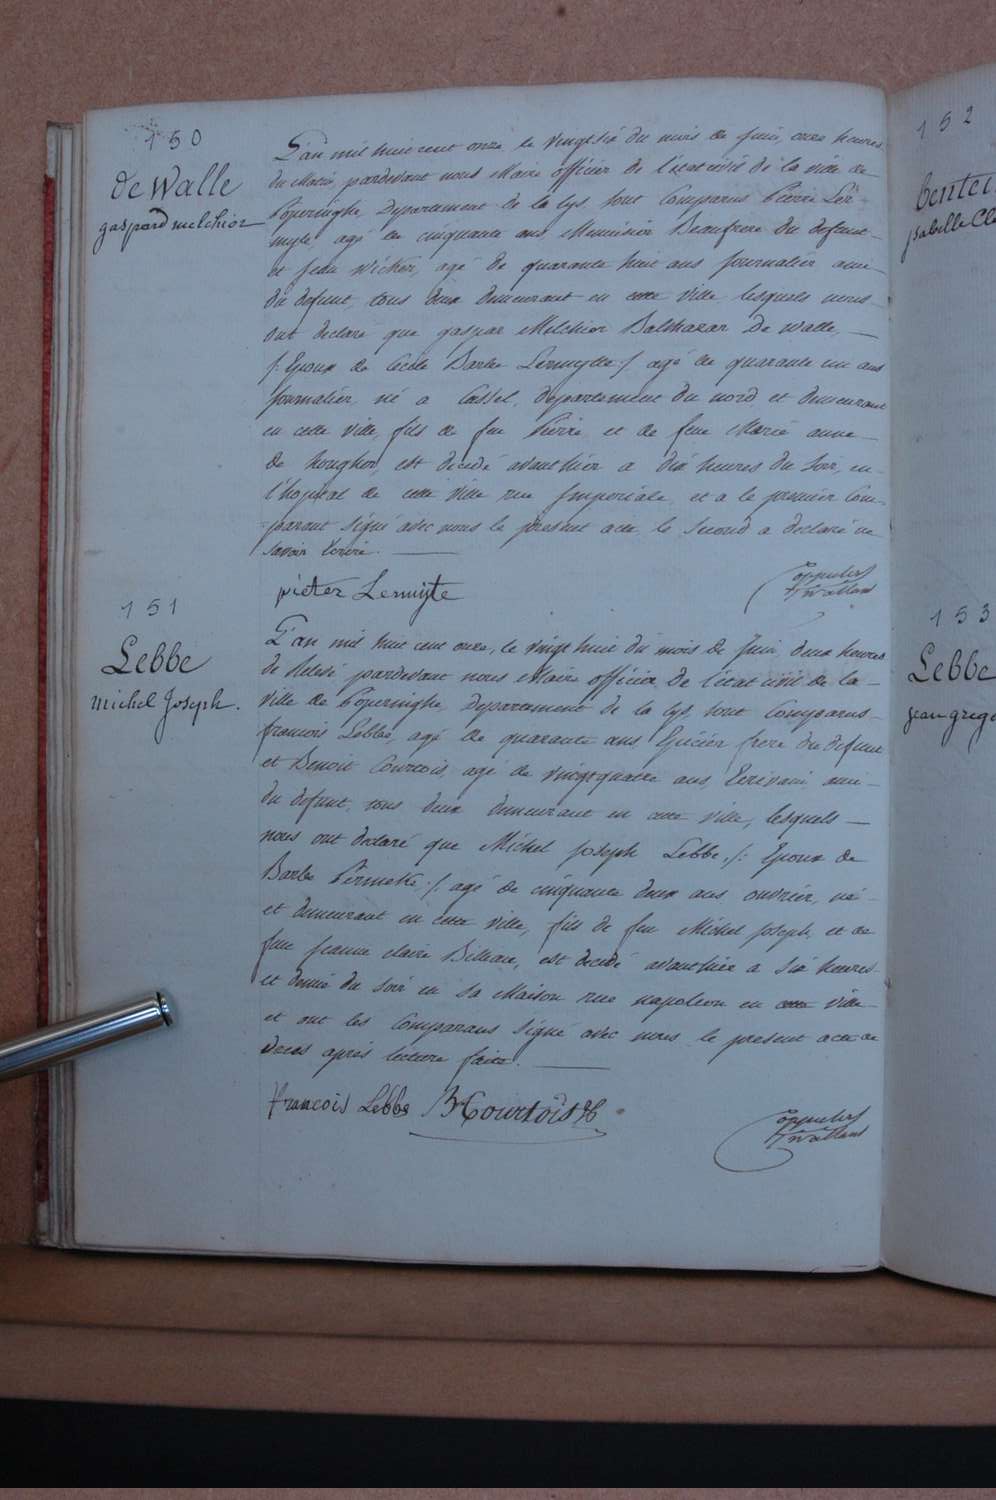 150
de Walle
gaspard melchior
L'an mil huit cent onze le vingt six du mois de juin, onze heures
du Matin pardevant nous Maire officier de l'état civil de la ville de
Poperinghe, Departement de la Lys, sont Comparus Pierre Ler-
mijte, agé de cinquante ans Menuisier Beaufrere du defunt
et jean agé de quarante huit ans journalier ami
du defunt, tous deux demeurant en cette ville lesquels nous
ont declaré que gaspar Melchior Balthazar De walle,
/: Epoux de Cecile Barbe Lermijte :/ agé de quarante un ans
journalier, né a Cassel, departement du nord et demeurant
en cette ville, fils de feu Pierre et de feue Marie anne
de est decedé avanthier a dix heures du soir, en
l'hopital de cette ville rue Imperiale, et a le premier Com-
parant signé avec nous le present acte le second a declaré ne
savoir écrire.
pieter Lermijte
151
Lebbe
michel Joseph.
L'an mil huit cent onze, le vingt huit du mois de Juin, deux heures
de Relevé pardevant nous Maire officier de l'état civil de la
ville de Poperinghe, Departement de la Lys, sont Comparus
francois Lebbe, agé de quarante ans, Epicier frere du defunt
et Benoit Courtois, agé de vingt quatre ans, Ecrivain ami
du defunt, tous deux demeurant en cette ville, lesquels
nous ont declaré que Michel joseph Lebbe, /: Epoux de
Barbe Permeke :/ agé de cinquante deux ans ouvrier, né
et demeurant en cette ville, fils de feu Michel Joseph, et de
feue jeanne claire est decedé avanthier a six heures
et demie du soir en sa Maison rue napoleon en cette ville
et ont les Comparans signé avec nous le present acte de
deces aprés lecture faite.
francois Lebbe B Courtois
152
153
Lebbe